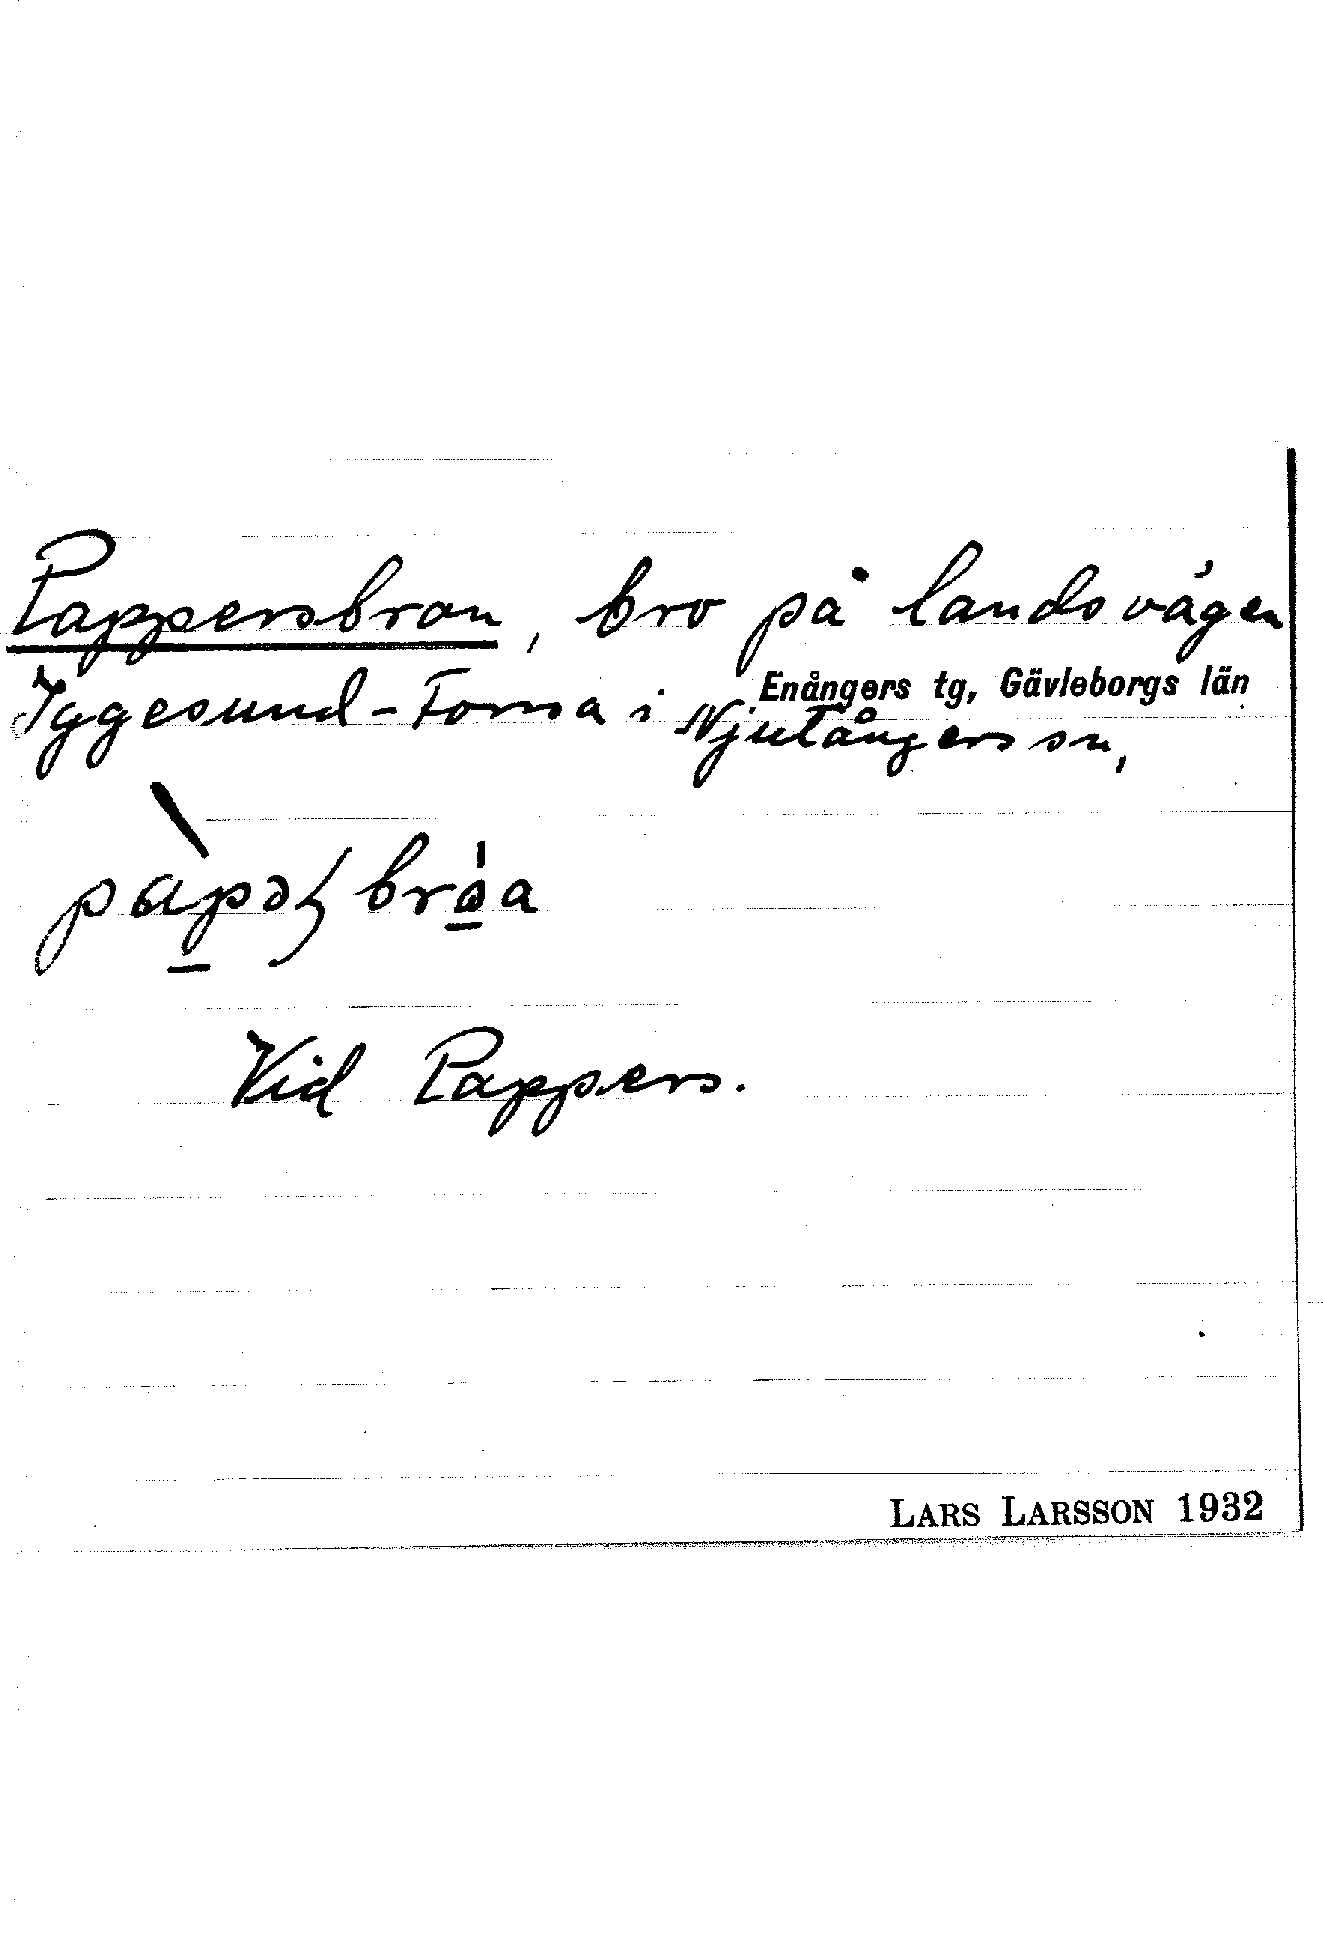 Pappersbron, bro på landsvägen
Iggesund-Forssa i Njutångers sn,
Enångers tg, Gävleborgs län
Vid Pappers.
LARS LARSSON 1932